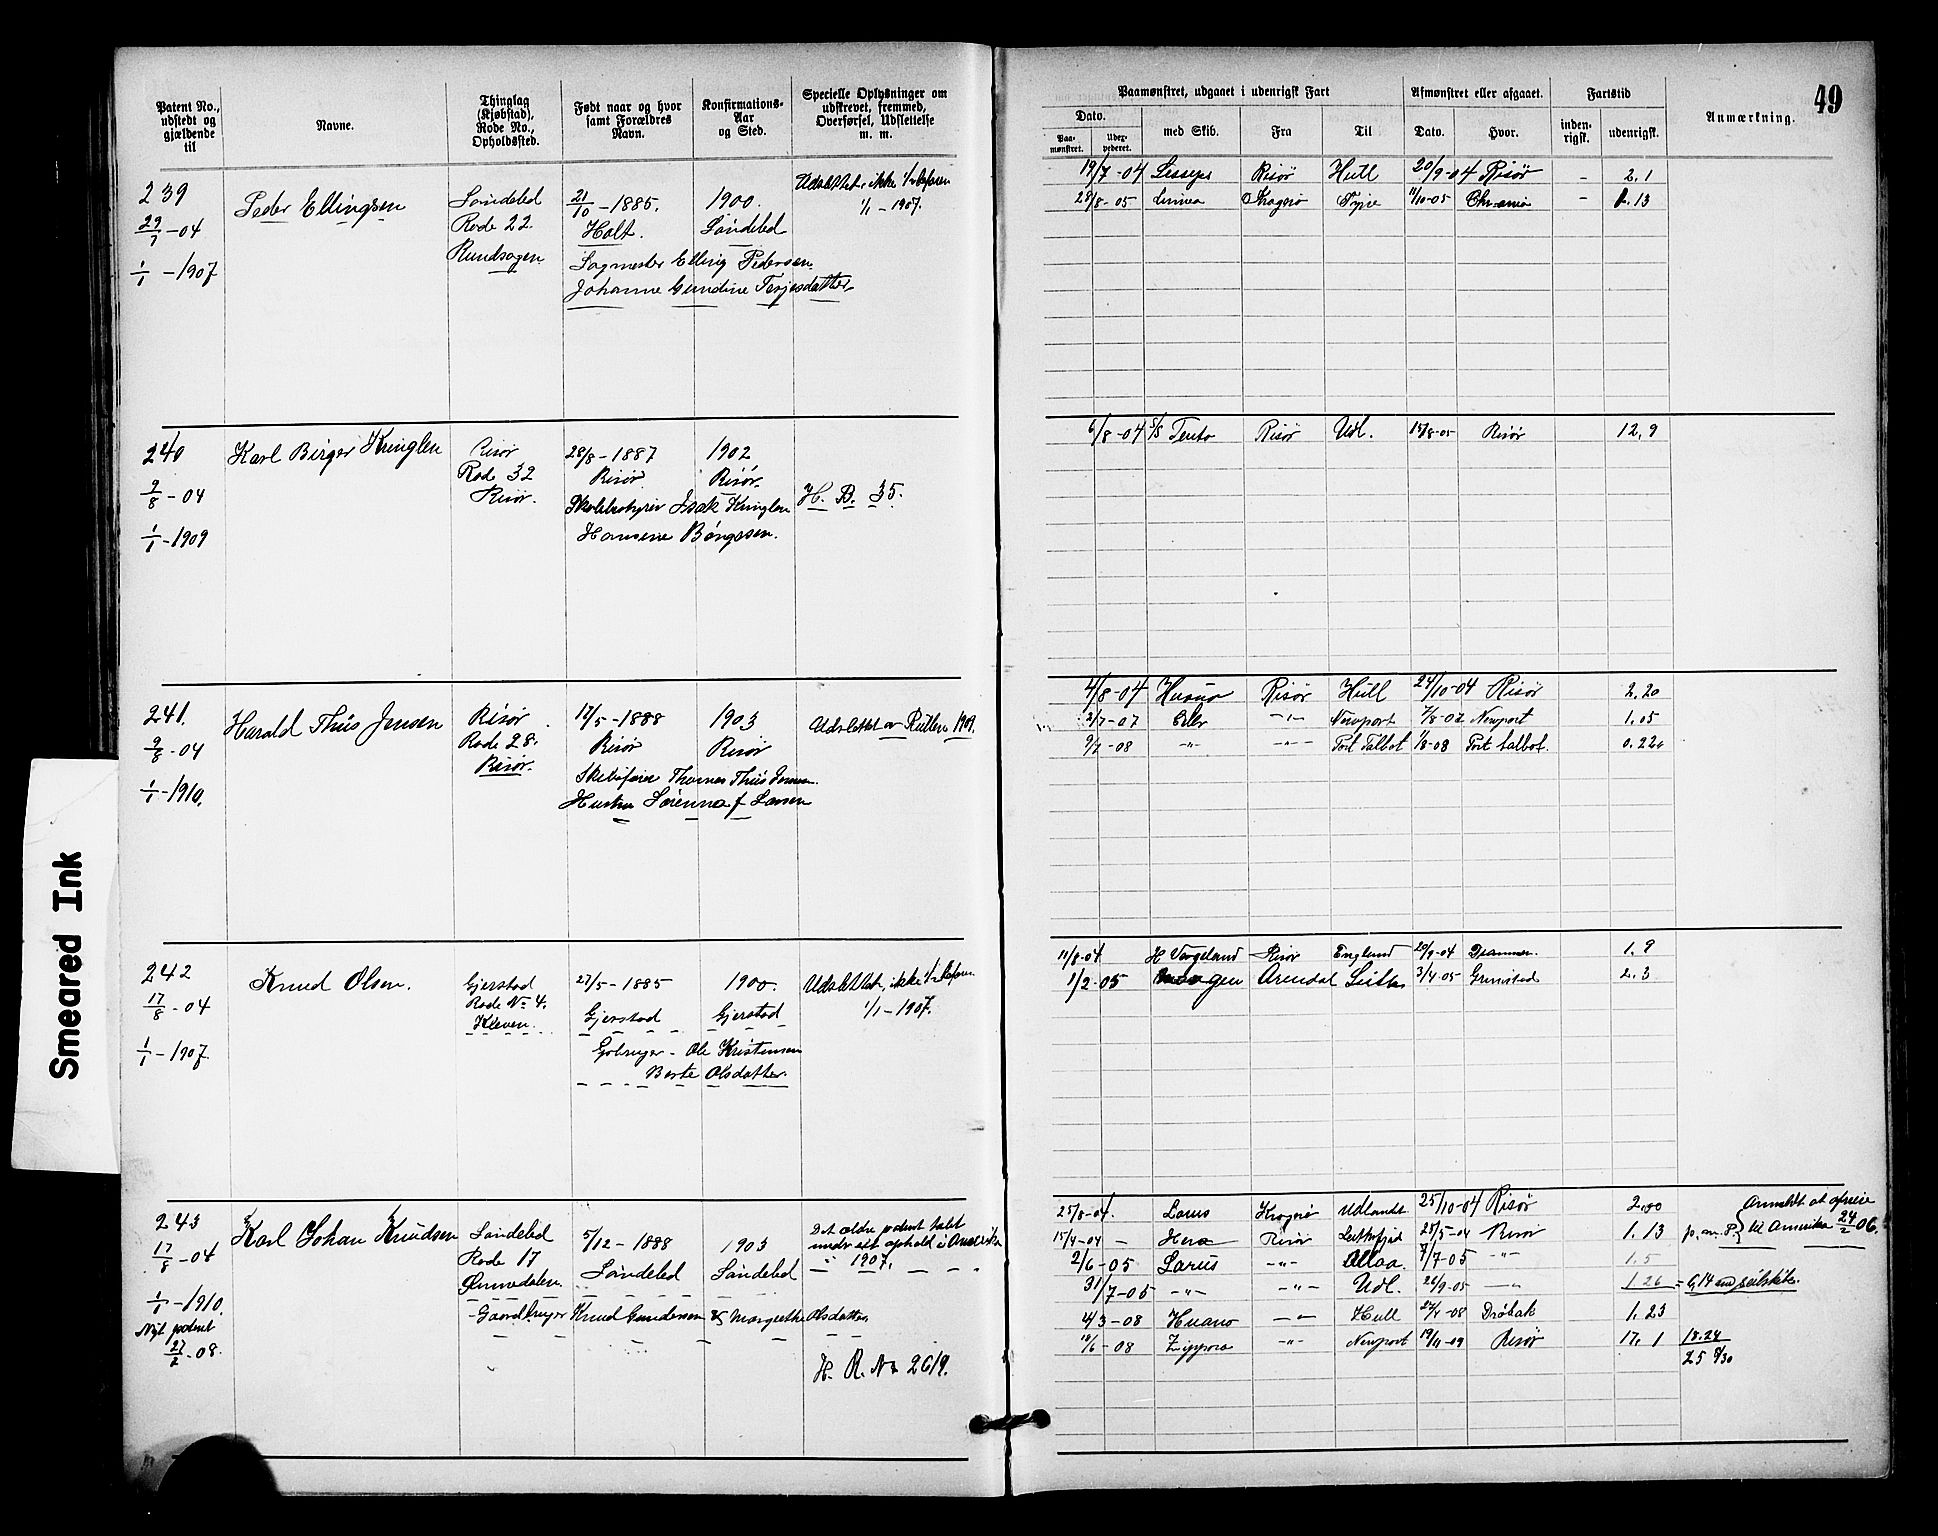 49
Patent No., udstedt og gjældende til
Navne.
Thinglag (Kjøbstad), Rode No., Opholdssted.
Født naar og hvor samt Forældres Navn.
Konfirmations-Aar og Sted.
Specielle Oplysninger om udskrevet, fremmed, Overførsel, Udslettelse m. m.
Paamønstret, udgaaet i udenrigsk Fart
Dato.
Paa-mønstret.
Udex-pederet.
med Skib.
Fra
Til
Afmønstret eller afgaaet.
Dato.
Hvor.
Fartstid
inden-rigsk.
udenrigsk.
Anmærkning.
239
29/7 - 04
1/1 - 1907
Peder Ellingsen
Søndeled
Rode 22.
21/10 - 1885.
Holt.
Elling Pedersen
Johanne Gundine Terjesdatter
1900.
Søndeled
Udslettet, ikke
1/1 - 1907.
19/7 - 04 Risør Hull 20/9 - 04 Risør - 2.1
28/8 - 05 Linnea Kragerø Tyne 11/10-05 - 1.13
240
9/8 - 04
1/1 - 1909
Karl Birger Kringlen
Risør
Rode 32
Risør.
28/8 - 1887
Risør
Isak Kringlen
1902
Risør.
H. B. 35.
6/8 - 04 Risør Udl. Risør 12.9
241.
9/8 - 04
1/1 - 1910.
Harald Thiis Jensen
Risør
Rode 28.
Risør.
1888
Risør
Thomas Thiis Jensen
Hustru
1903
Risør
Udslettet av Rullen 1909.
4/8 - 04 Risør Hull 24/10 - 04 Risør 2.20
2/7 - 07 -"- Newport Newport 1.05
9/7 - 08 -"- -"- Port Talbot 1/8 - 08 Port talbot.
242
17/8 - 04
1/1 - 1907.
Knud Olsen.
Gjerstad
Rode No 4.
Kleven.
27/5 - 1885
Gjerstad
Ole Kristensen
Berte Olsdatter.
1900.
Gjerstad
Udslettet, ikke
1/1 - 1907.
11/8 - 04 H Vergeland Risør England 20/9 - 04 Drammen. 1.9
1/2 - 05 Arendal 3/4 - 05 Grimstad 2.3
243
17/8 - 04
1/1 - 1910.
Nyt patent
27/2 - 08.
Karl Johan Knudsen
Søndeled
Rode 17
5/12 - 1888
Søndeled
Gaardbruger Knud Gundersen & Margrethe Olsdatter
1903
Søndeled
Det ældre patent tabt
under sit ophold i Amerika
i 1907.
H. R. No 2619.
25/8 - 04. Larus Kragerø Udlandet 25/10 - 04 Risør 2.00
15/4 - 04 - Hera Risør 25/5 - 04 Risør 1.13
2/6 - 05 Larus -"- Alloa. 7/7 - 05 -"- 1.5
31/7 - 05 -"- -"- Udl. 26/9 - 05 -"- 1.26
4/3 - 08 Huano -"- Hull Drøbak 1.23
10/6 - 08 Zippora -"- Newport Risør 17. 1
Anmeldt at afreise
til Amerika 24/2 06.
18.24